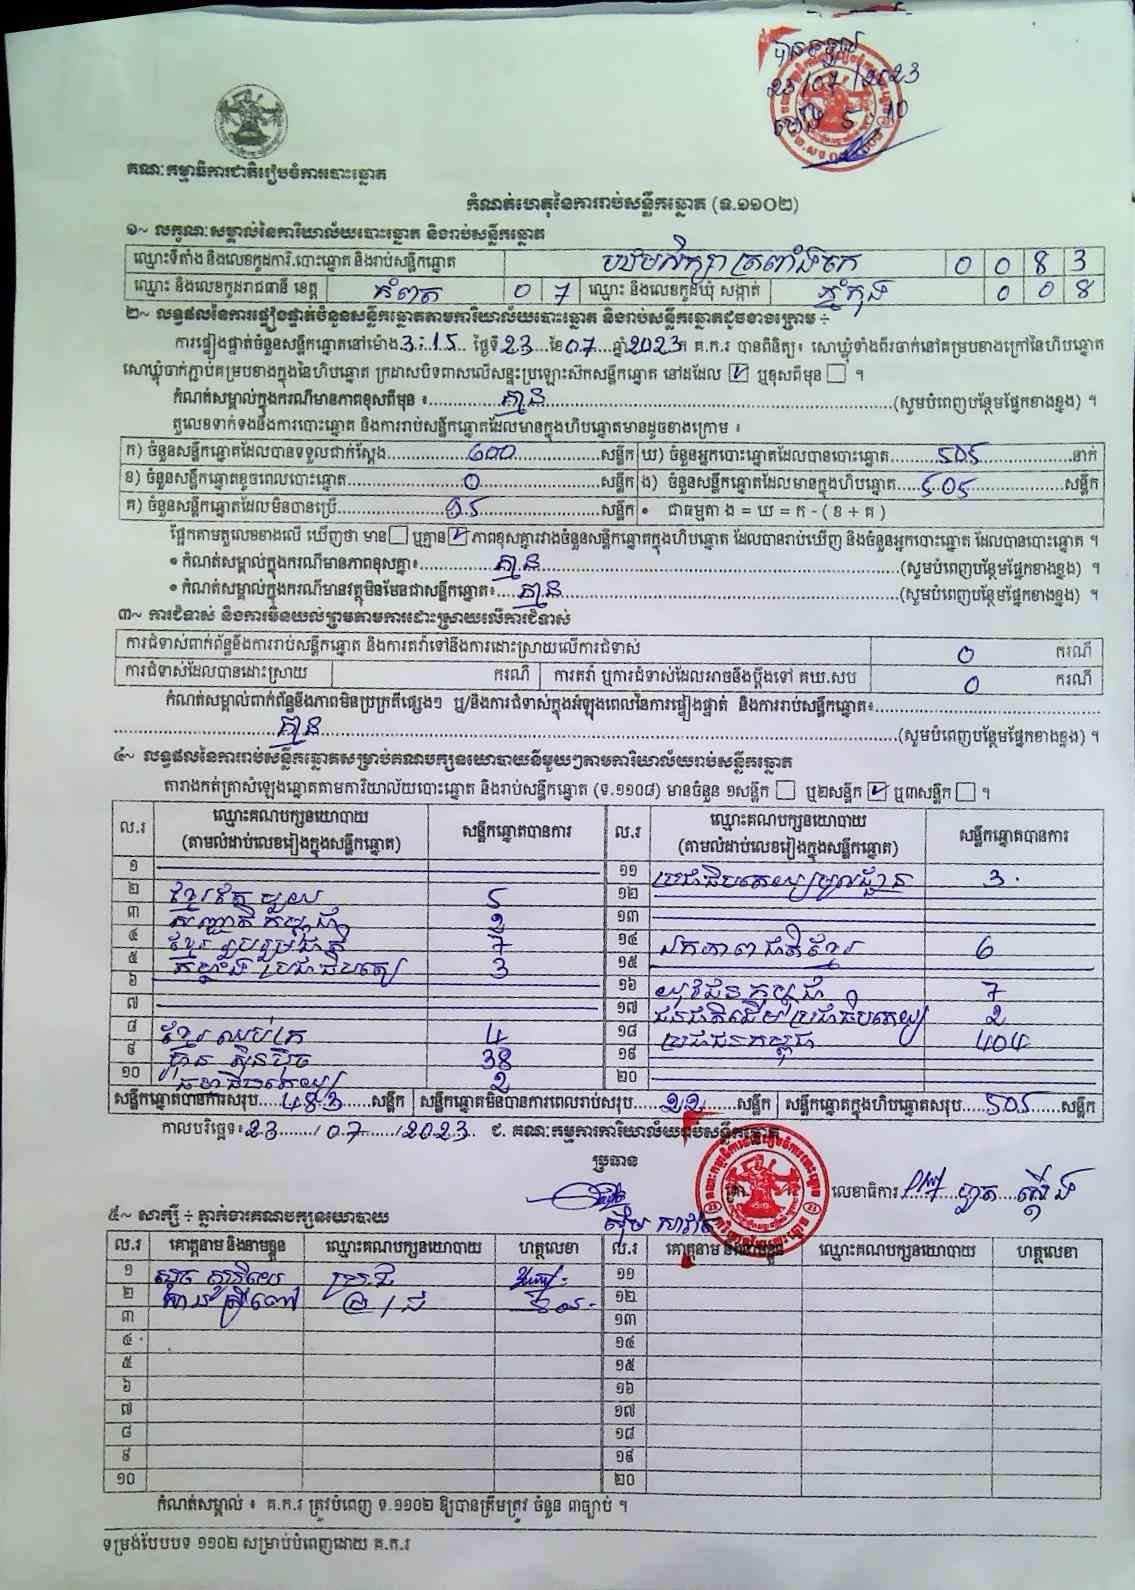 បានទទួល
23/07/2023
ម៉ោង 5:10
គណៈកម្មាធិការជាតិរៀបចំការបោះឆ្នោត
កំណត់ហេតុនៃការរាប់សន្លឹកឆ្នោត (ទ.១១០២)
១~ លក្ខណៈសម្គាល់នៃការិយាល័យបោះឆ្នោត និងរាប់សន្លឹកឆ្នោត
ឈ្មោះទីតាំង និងលេខកូដការិ.បោះឆ្នោត និងរាប់សន្លឹកឆ្នោត បឋមសិក្សា ត្រពាំងកែ 0 0 8 3
ឈ្មោះ និងលេខកូដរាជធានី ខេត្ត កំពត 0 7 ឈ្មោះ និងលេខកូដឃុំ សង្កាត់ ភ្នំកុង 0 0 8
២~ លទ្ធផលនៃការផ្ទៀងផ្ទាត់ចំនួនសន្លឹកឆ្នោតតាមការិយាល័យបោះឆ្នោត និងរាប់សន្លឹកឆ្នោតដូចខាងក្រោម ÷
ការផ្ទៀងផ្ទាត់ចំនួនសន្លឹកឆ្នោតនៅម៉ោង 3:15 ថ្ងៃទី 23 ខែ 07 ឆ្នាំ 2023 គ.ក.រ បានពិនិត្យ៖ សោឃ្លុំទាំងពីរចាក់នៅគម្របខាងក្រៅនៃហិបឆ្នោត
សោឃ្លុំចាក់ភ្ជាប់គម្របខាងក្នុងនៃហិបឆ្នោត ក្រដាសបិទពាសលើសន្ទះប្រឡោះស៊កសន្លឹកឆ្នោត នៅដដែល ☑ ឬខុសពីមុន ☐ ។
កំណត់សម្គាល់ក្នុងករណីមានភាពខុសពីមុន ៖ គ្មាន (សូមបំពេញបន្ថែមផ្នែកខាងខ្នង) ។
តួលេខទាក់ទងនឹងការបោះឆ្នោត និងការរាប់សន្លឹកឆ្នោតដែលមានក្នុងហិបឆ្នោតមានដូចខាងក្រោម ៖
ក) ចំនួនសន្លឹកឆ្នោតដែលបានទទួលជាក់ស្តែង 600 សន្លឹក ឃ) ចំនួនអ្នកបោះឆ្នោតដែលបានបោះឆ្នោត 505 នាក់
ខ) ចំនួនសន្លឹកឆ្នោតខូចពេលបោះឆ្នោត 0 សន្លឹក ង) ចំនួនសន្លឹកឆ្នោតដែលមានក្នុងហិបឆ្នោត 505 សន្លឹក
គ) ចំនួនសន្លឹកឆ្នោតដែលមិនបានប្រើ 95 សន្លឹក • ជាធម្មតា ង = ឃ = ក - ( ខ + គ )
ផ្អែកតាមតួលេខខាងលើ ឃើញថា មាន ☐ ឬគ្មាន ☑ ភាពខុសគ្នារវាងចំនួនសន្លឹកឆ្នោតក្នុងហិបឆ្នោត ដែលបានរាប់ឃើញ និងចំនួនអ្នកបោះឆ្នោត ដែលបានបោះឆ្នោត ។
• កំណត់សម្គាល់ក្នុងករណីមានភាពខុសគ្នា៖ គ្មាន (សូមបំពេញបន្ថែមផ្នែកខាងខ្នង) ។
• កំណត់សម្គាល់ក្នុងករណីមានវត្ថុមិនមែនជាសន្លឹកឆ្នោត៖ គ្មាន (សូមបំពេញបន្ថែមផ្នែកខាងខ្នង) ។
៣~ ការជំទាស់ និងការមិនយល់ព្រមតាមការដោះស្រាយលើការជំទាស់
ការជំទាស់ពាក់ព័ន្ធនឹងការរាប់សន្លឹកឆ្នោត និងការតវ៉ាទៅនឹងការដោះស្រាយលើការជំទាស់ 0 ករណី
ការជំទាស់ដែលបានដោះស្រាយ ករណី ការតវ៉ា ឬការជំទាស់ដែលអាចនឹងប្តឹងទៅ គឃ.សប 0 ករណី
កំណត់សម្គាល់ពាក់ព័ន្ធនឹងភាពមិនប្រក្រតីផ្សេងៗ ឬ/និងការជំទាស់ក្នុងអំឡុងពេលនៃការផ្ទៀងផ្ទាត់ និងការរាប់សន្លឹកឆ្នោត៖
គ្មាន (សូមបំពេញបន្ថែមផ្នែកខាងខ្នង) ។
៤~ លទ្ធផលនៃការរាប់សន្លឹកឆ្នោតសម្រាប់គណបក្សនយោបាយនីមួយៗតាមការិយាល័យរាប់សន្លឹកឆ្នោត
តារាងកត់ត្រាសំឡេងឆ្នោតតាមការិយាល័យបោះឆ្នោត និងរាប់សន្លឹកឆ្នោត (ទ.១១០៨) មានចំនួន ១សន្លឹក ☐ ឬ២សន្លឹក ☑ ឬ៣សន្លឹក ☐ ។
ល.រ ឈ្មោះគណបក្សនយោបាយ (តាមលំដាប់លេខរៀងក្នុងសន្លឹកឆ្នោត) សន្លឹកឆ្នោតបានការ ល.រ ឈ្មោះគណបក្សនយោបាយ (តាមលំដាប់លេខរៀងក្នុងសន្លឹកឆ្នោត) សន្លឹកឆ្នោតបានការ
១ ១១ ប្រជាធិបតេយ្យមូលដ្ឋាន 3
២ ខ្មែរតែមួយ 5 ១២
៣ សញ្ជាតិកម្ពុជា 2 ១៣
៤ ខ្មែររួបរួមជាតិ 7 ១៤ ឯកភាពជាតិខ្មែរ 6
៥ កម្លាំងប្រជាធិបតេយ្យ 3 ១៥
៦ ១៦ យុវជនកម្ពុជា 7
៧ ១៧ ជនជាតិដើមប្រជាធិបតេយ្យ 2
៨ ខ្មែរឈប់ក្រ 4 ១៨ ប្រជាជនកម្ពុជា 404
៩ ហ៊្វុនស៊ិនប៉ិច 38 ១៩
១០ ធម្មាធិបតេយ្យ 2 ២០
សន្លឹកឆ្នោតបានការសរុប 483 សន្លឹក សន្លឹកឆ្នោតមិនបានការពេលរាប់សរុប 22 សន្លឹក សន្លឹកឆ្នោតក្នុងហិបឆ្នោតសរុប 505 សន្លឹក
កាលបរិច្ឆេទ៖ 23/07/2023 ជ. គណៈកម្មការការិយាល័យរាប់សន្លឹកឆ្នោត
ប្រធាន
លេខាធិការ
៥~ សាក្សី ÷ ភ្នាក់ងារគណបក្សនយោបាយ
ល.រ គោត្តនាម និងនាមខ្លួន ឈ្មោះគណបក្សនយោបាយ ហត្ថលេខា ល.រ គោត្តនាម និងនាមខ្លួន ឈ្មោះគណបក្សនយោបាយ ហត្ថលេខា
១ ១១
២ ១២
៣ ១៣
៤ ១៤
៥ ១៥
៦ ១៦
៧ ១៧
៨ ១៨
៩ ១៩
១០ ២០
កំណត់សម្គាល់ ៖ គ.ក.រ ត្រូវបំពេញ ទ.១១០២ ឱ្យបានត្រឹមត្រូវ ចំនួន ៣ច្បាប់ ។
ទម្រង់បែបបទ ១១០២ សម្រាប់បំពេញដោយ គ.ក.រ